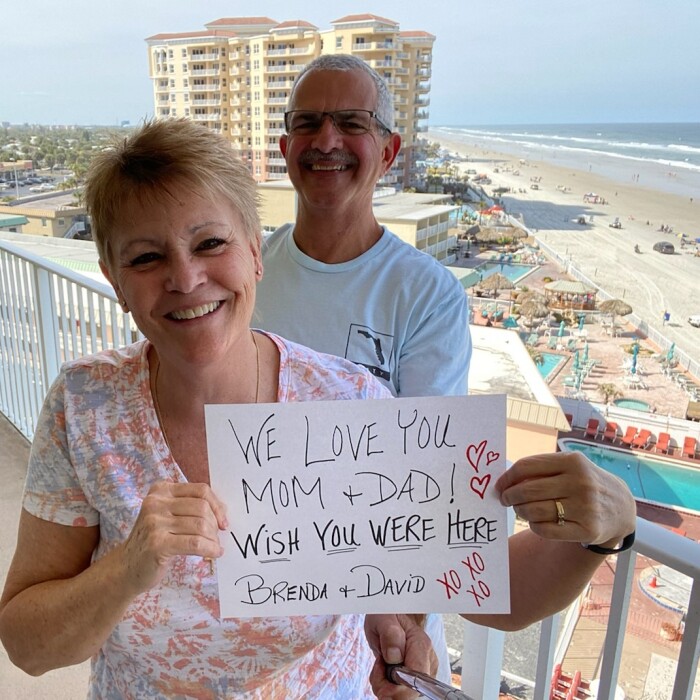 WE LOVE YOU
MOM + DAD!
WISH YOU WERE HERE
BRENDA + DAVID XO XO XO